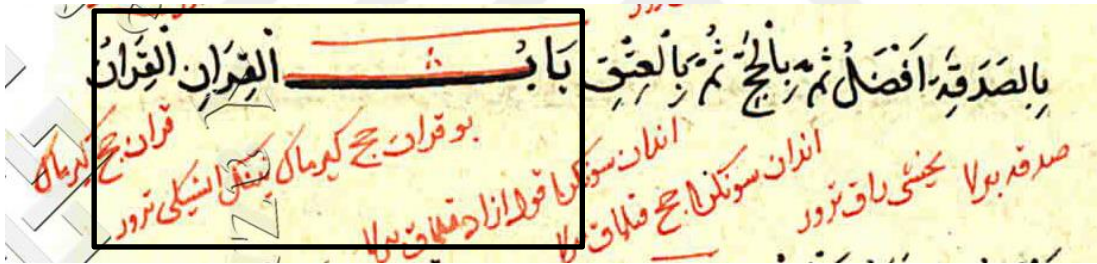 بِالصَدَقَةِ اَفضَلُ ثُمَّ بِالحَجِّ ثُمَّ بِالعِتْقِ بَابُ القِرَانِ القِرَانُ
صدقه بيرلا يخشى راق ترور
اندان سونكرا حج قيلماق بيرلا
اندان سونكرا قول ازاد قيلماق بيرلا
بو قران حج كيرماك نينك ايشيكى ترور
قران حج كيرماك